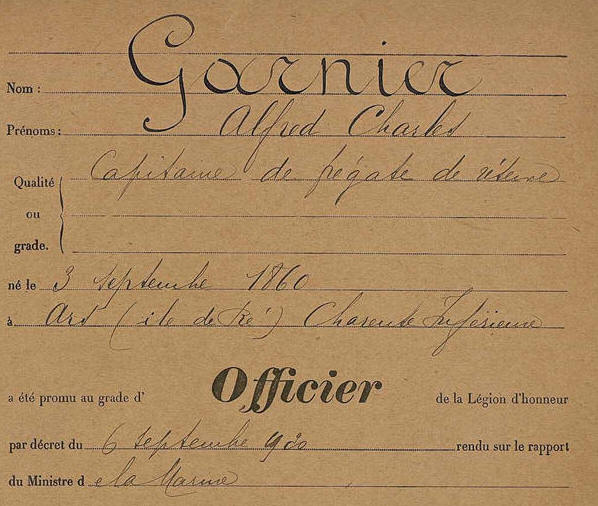 Nom : Garnier
Prénoms : Alfred Charles
Qualité ou grade. Capitaine de frégate de réserve
né le 3 septembre 1860
à Ars (ile de Ré) Charente Inférieure
a été promu au grade d' Officier de la Légion d'honneur
par décret du 6 septembre 1920 rendu sur le rapport
du Ministre de la Marine